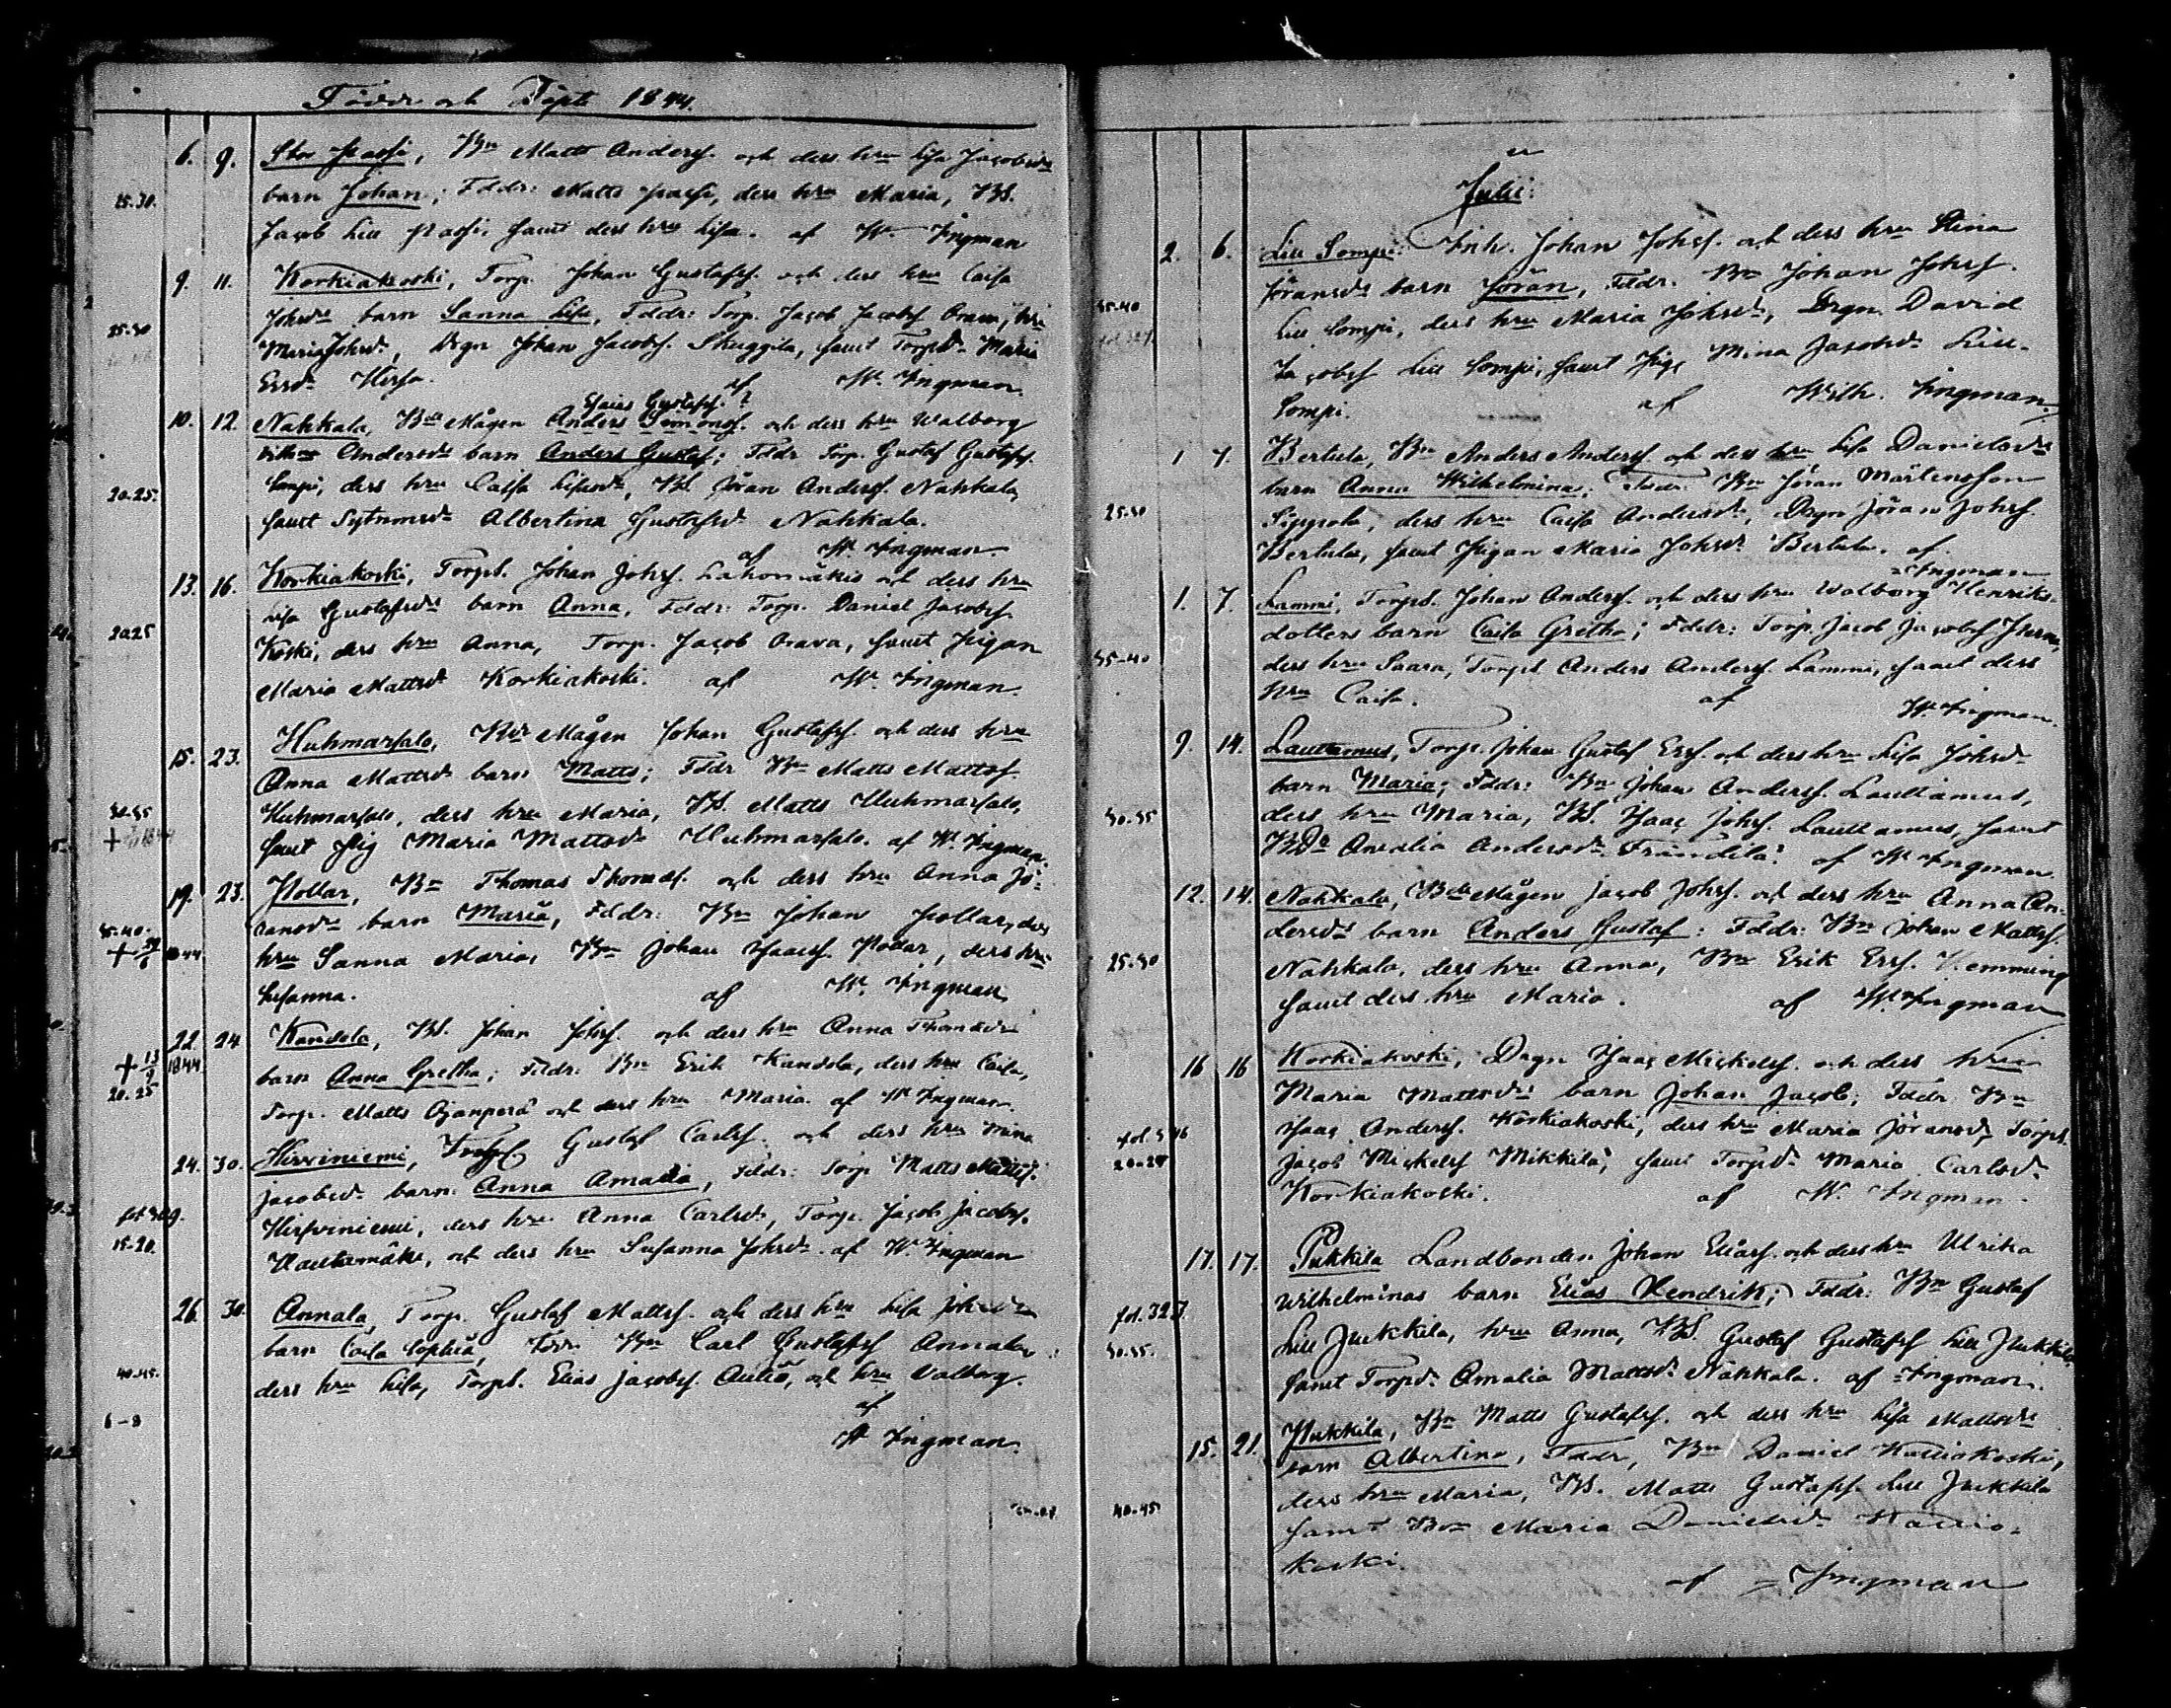 Födde och Döpte 1844.
6. 9. Stor Passi, Bn Matts Anderss. och dess hru Lisa Jacobsdr
25.30. barn Johan; Fddr: Matts Passi, dess hru Maria, BS.
Jacob Lill Passi samt dess hru Lisa. af W. Ingman
9. 11. Korkiakoski, Torp. Johan Gustafss. och dess hru Caisa
25.30 Johsdr barn Sanna Lisa, Fddr: Torp. Jacob Jacobss Orava, hru
Maria Johsdr, Drgn Johan Jacobss. Skuggila, samt Torpdr Maria
Ersdr af W. Ingman.
Esaias Gustafss. ?
10. 12. Nahkala, Bde Mågen Anders Simonss. och dess hru Walborg
Andersdr barn Anders Gustaf; Fddr Torp. Gustaf Gustafss.
20.25. Sompi, dess hru Caisa Lisa, BS. Jöran Anderss. Nahkala,
samt Sytnmsdr Albertina Gustafsdr Nahkala.
af W. Ingman.
13. 16. Korkiakoski, Torpd. Johan Johss. och dess hru
20.25 Lisa Gustafsdr barn Anna, Fddr: Torp. Daniel Jacobss.
Koski, dess hru Anna, Torp. Jacob Orava, samt Pigan
Maria Mattsdr Korkiakoski. af W. Ingman.
15. 23. Huhmarsalo, Mågen Johan Gustafss. och dess hru
Anna Mattsdr barn Matts; Fddr Bn Matts Mattss.
30.35 Huhmarsalo, dess hru Maria, BS. Matts Huhmarsalo,
+ samt Pig Maria Mattsdr Huhmarsalo. af W. Ingman.
19. 23. Pollar, Bn Thomas Thomass. och dess hru Anna Jö-
ransdr barn Maria, Fddr: Bn Johan Pollar, dess
+ 29/6 1844 hru Sanna Maria, Bn Johan Isaacss. Pollar, dess hru
Susanna. af W. Ingman
22. 24 Kandola, BS. Johan Johss. och dess hru Anna Thomasdr
+ 13/9 1844 barn Anna Gretha; Fddr: Bn Erik Kandola, dess hru Caisa,
20.25 Torp. Matts Ojanperä och dess hru Maria. af W. Ingman.
24. 30. Hirviniemi, Torp Gustaf Carlss. och dess hru Mina
Jacobsdr barn Anna Amalia, Fddr: Torp Matts Mattss.
fol 309. Hirfviniemi, dess hru Anna Carlsdr, Torp. Jacob Jacobss.
15-20. Hautamäki, och dess hru Susanna Johsdr. af W. Ingman
26. 30. Annala, Torp. Gustaf Mattss. och dess hru Lisa Johsdr
barn Caisa Sophia, Fddr. Bn Carl Gustafss Annala
40.45. dess hru Lisa, Torpd. Elias Jacobss. Autio, och hru Valborg.
6-8 af
W Ingman.
Julii:
2. 6. Lill Sompi: Inh. Johan Johss. och dess hru Stina
Jöransdr barn Jöran, Fddr. Bn Johan Johss.
35.40 Lill Sompi, dess hru Maria Johsdr, Drgn. David
Jacobss Lill Sompi, samt Pig, Mina Jacobsdr Lill-
Sompi. af Wilh. Ingman.
1 7. Bertula, Bn Anders Anderss och dess hru Lisa Danielsdr
barn Anna Wilhelmina; Fddr: Bn Jöran Mårtensson
25.30 Sippola, dess hru Caisa Andersdr, Drgn Jöran Johss.
Bertula, samt Pigan Maria Johsdr Bertula. af
Ingman
1. 7. Lammi, Torpd. Johan Anderss. och dess hru Walborg Henriks-
dotters barn Caisa Gretha; Fddr: Torp. Jacob Jacobss
35-40 dess hru Saara, Torpd. Anders Anderss. Lammi, samt dess
hru Caisa. af W. Ingman.
9. 14. Lauttamus, Torp. Johan Gustaf Erss. och dess hru Lisa Johsdr
barn Maria; Fddr: Bn Johan Anderss. Lauttamus,
30.35 dess hru Maria, BS. Isaac Johss. Lauttamus, samt
BDr Amalia Andersdr Frändilä. af W Ingman
12. 14. Nahkala, Bde Mågen Jacob Johss. och dess hru Anna An-
dersdr barn Anders Gustaf: Fddr: Bn Johan Mattss.
25.30 Nahkala, dess hru Anna, Bn Erik Erss. Hemming
samt dess hru Maria. af W. Ingman
16 16 Korkiakoski, Drgn Isaac Mickelss. och dess hru
Maria Mattsdr barn Johan Jacob; Fddr Bn
Isaac Anderss. Korkiakoski, dess hru Maria Jöransdr, Torpd.
20-25 Jacob Mickelss Mikkilä, samt Torpdr Maria Carlsdr
Korkiakoski. af W. Ingman.
17. 17. Pukkila Landbonden Johan Eliass. och dess hru Ulrika
Wilhelminas barn Elias Hendrik; Fddr: Bn Gustaf
fol. 327. Lill Jukkila, hru Anna, BS. Gustaf Gustafss Lill Jukkila
30.35. samt Torpdr Amalia Mattsdr Nahkala. af Ingman.
15. 21. Jukkila, Bn Matts Gustafss. och dess hru Lisa Mattsdr
barn Albertina, Fddr, Bn Daniel Kalliokoski,
dess hru Maria, BS. Matts Gustafss. Lill Jukkila
40.45 samt BDr Maria Danielsdr Kallio-
koski.
af Ingman